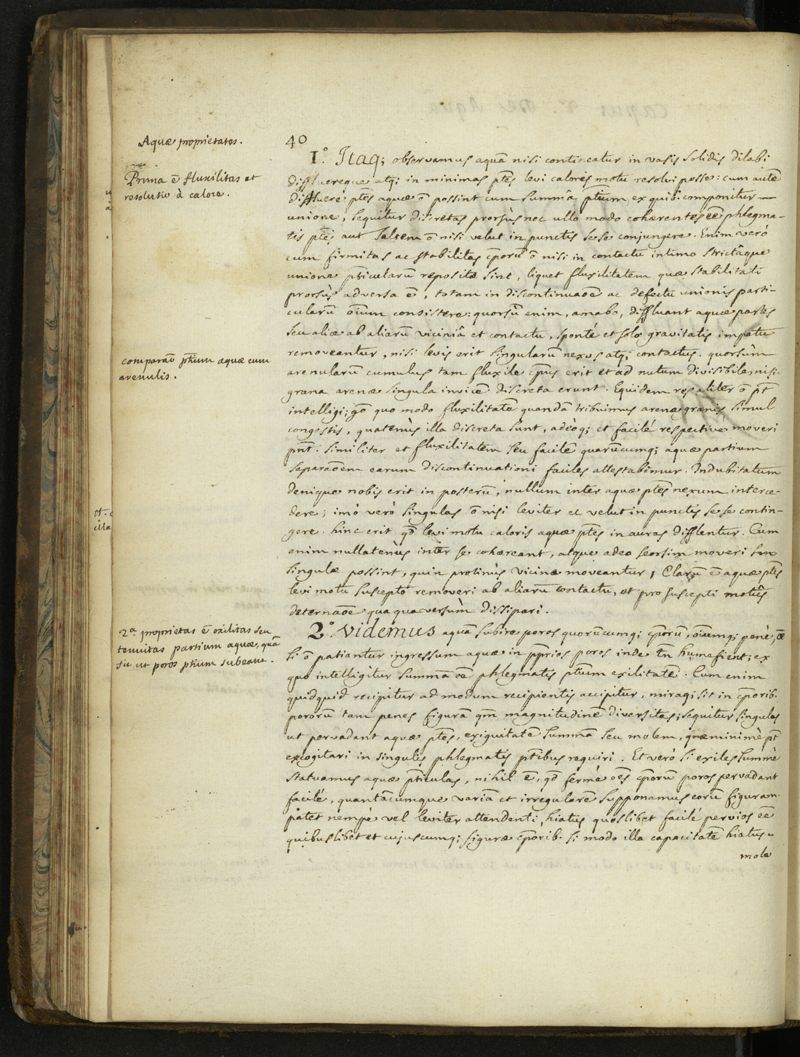 40
Aquæ proprietates.
Prima ē fluxilitas et
resolutio à calore.
1.° Itaq; observamus aquā nisi contineatur in vasis solidis dilabi
diffluereque atq; in minimas ptēs levi caloris motu resolvi posse: cum autē
diffluere ptēs aquæ ō possint cum summâ ptium ex quib. componitur
unione, sequitur discretas prorsùs nec ullo modo cohærentes ēē phlegma-
tis ptēs aut saltem ō nisi velut in punctis sese conjungere. Enim verò
cum firmitas ac stabilitas cporū ō nisi in contactu intimo strictâque
unione pticularū reposita sint, liquet fluxilitatem quæ stabilitati
prorsùs adversa ē, totam in discontinuaōē ac defectu unionis parti-
cularū ōium consistere: quorsū enim, amabo, diffluant aquæ partes
seu aliæ ab aliarū viciniâ et contactu, sponte et solo gravitatis impetu
removeantur, nisi levis erit singularū nexus atq; contactus. quorsùm
comparaō ptium aquæ cum
arenulis.
arenularum cumulus tam fluxile cpus erit et ad nutum divisibile, nisi
grana arenæ singula invicē discreta erunt. Equidem res aliter ō pt
intelligi; gō quo modo fluxilitatē quandā tribuimus arenæ granis simul
congestis, quatenùs illa discreta sunt, adeoq; et facilè respective moveri
pnt. similiter et fluxilitatem seu facilē quarūcumq; aquæ partium
separaōem earum discontinuationi faciles attestabimur. Indubitatum
denique nobis erit in posterū, nullum inter aquæ ptēs nexum interce-
dere; imò verò singulas ō nisi leviter et velut in punctis sese contin-
gere. hinc erit qō levi motu caloris aquæ ptēs in auras difflentur. Cum
enim nullatenùs inter se cohæreant, atque adeo seorsim moveri
singulæ possint, quin protinùs vicinæ moveantur, Clarū ē aquæ ptēs
levi motu suscepto removeri ab aliarū contactu, et pro suscepti motûs
determaōē quaquaversùm dissipari.
2ª proprietas ē exilitas seu
tenuitas partium aquæ, quâ
fit ut poros ptium subeant.
2.° Videmus aquā subire poros quorūcumq; cporū, ōiumq; penè,
si ō patiantur ingressum aquæ in pprios poros inde tn humefient; ex
quo intelligitur summa ēē phlegmatis ptium exilitatē. Cum enim
quidquid recipitur ad modum recipientis accipiatur, miraq; sit in cporib.
pororū tam penes figurā qm magnitudinē diversitas; sequitur singulos
ut pervadant aquæ ptēs, exiguitatē summā seu molem, quæ minimè pt
excogitari in singulis phlegmatis ptibus requiri. Et verò si exiles summè
statuamus aquæ pticulas, nihil ē, qō fermè ōēs cporū poros pervadant
facilè, quantacumque variam et irregularē supponamus eorū figuram
patet nempè vel leviter attendenti, hiatus quoslibet facilè pervios ēē
quibuslibet et cujuscumq; figuræ cporib. si modo illa capacitatē hiatus
mole